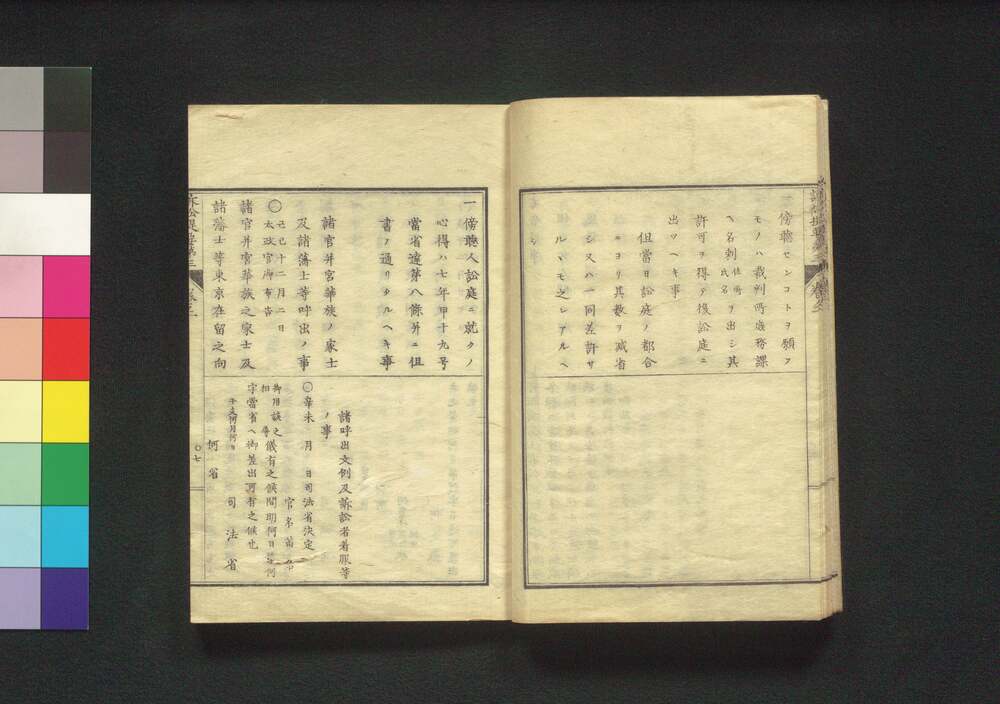 一傍聽センコトヲ願フ
モノハ裁判所庶務課
ヘ名刺住所氏名ヲ出シ其
許可ヲ得テ後訟庭ニ
出ツヘキ事
但當日訟庭ノ都合
ニヨリ其数ヲ减省
シ又ハ一同差許サ
ルヿモ之レアルヘ
シ
一傍聽人訟庭ニ就クノ
心得ハ七年甲十九号
當省達第八條外ニ但
書ノ通リタルヘキ事
諸官并宮華族ノ家士
及諸藩士等呼出ノ事
〇己巳十二月二日
太政官御布告
諸官并宮華族之家士及
諸藩士等東京在留之向
諸呼出文例及訴訟者着服等
ノ事
〇辛未 月 日司法省決定
官名苗名
御用談之
相尋儀有之候間明何日
字當省ヘ御差出可有之候也
干支何月何日
司法省
何省
〇七